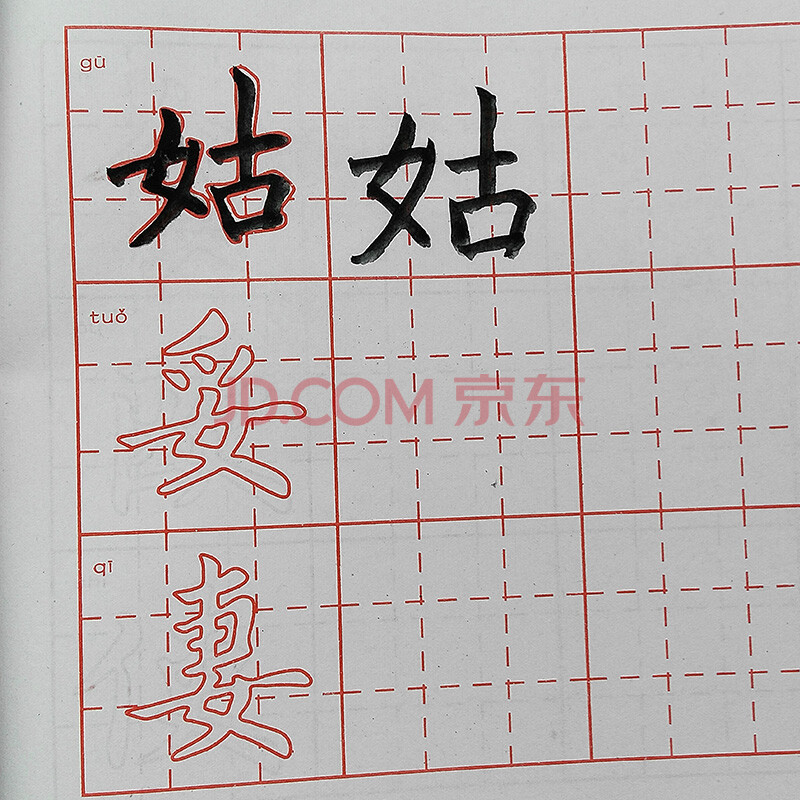 gū
姑 姑
tuǒ
妥
JD.COM 京东
qī
妻